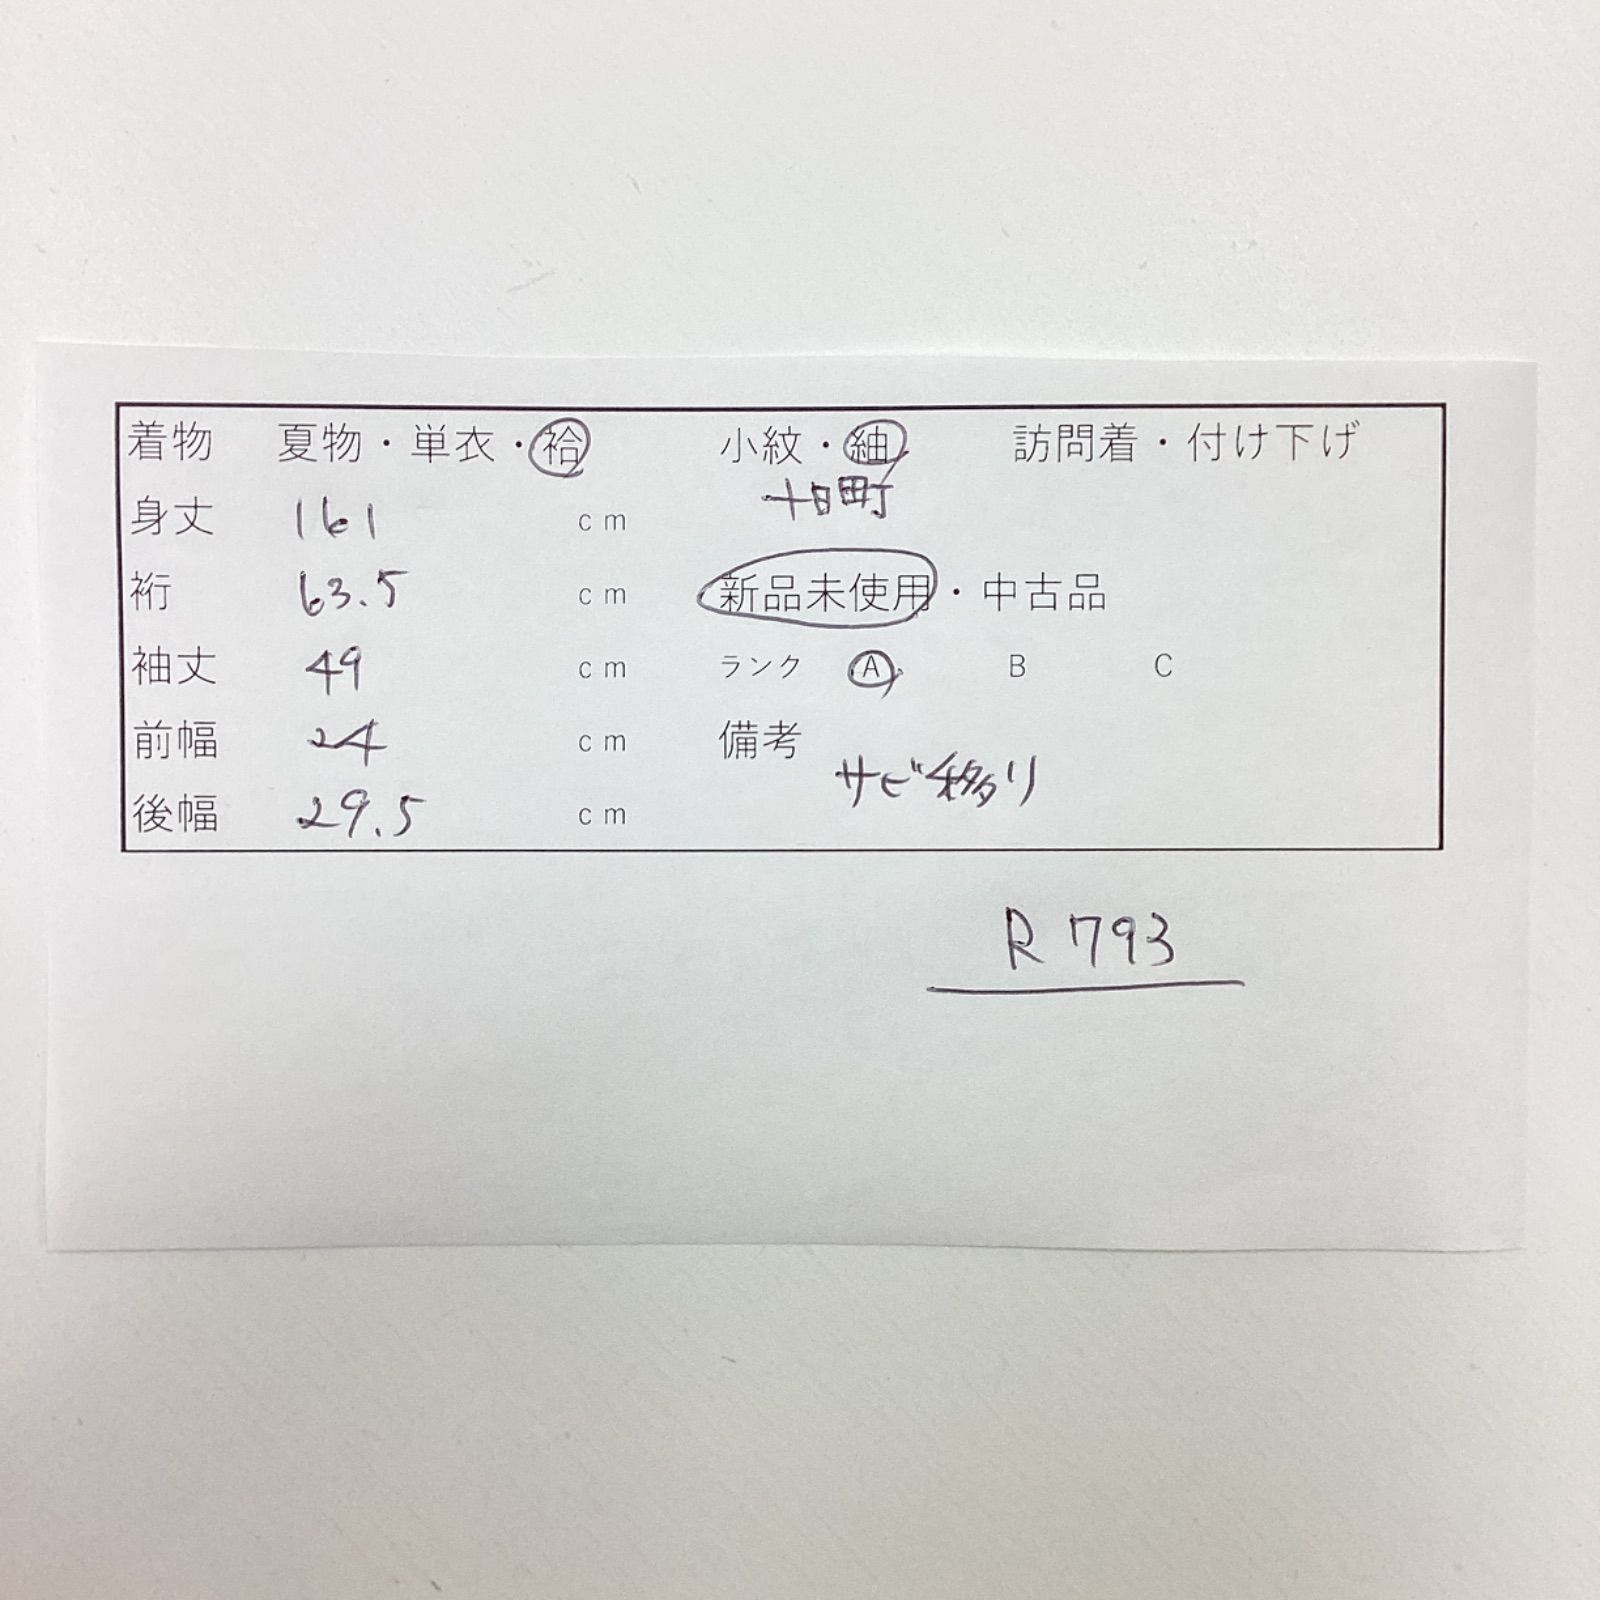 着物 夏物・単衣・袷 小紋・紬 訪問着・付け下げ
十日町
身丈 161 cm
裄 63.5 cm 新品未使用・中古品
袖丈 49 cm ランク A B C
前幅 24 cm 備考
サビ移り
後幅 29.5 cm
R793